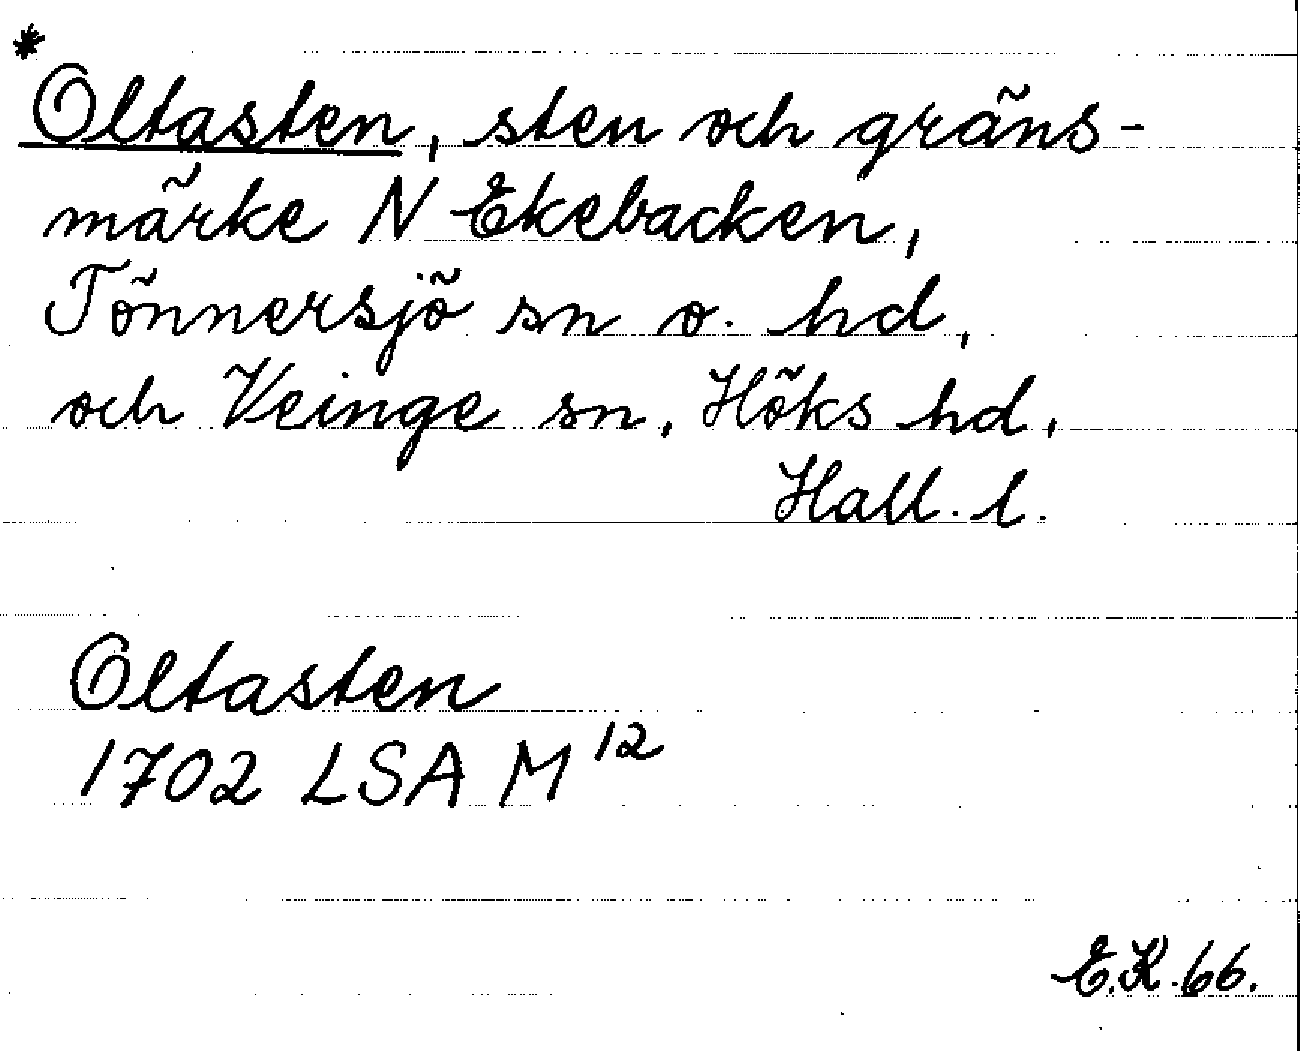 *
Oltasten, sten och gräns-
märke N Ekebacken,
Tönnersjö sn o. hd,
och Veinge sn, Höks hd,
Hall. l.
Oltasten
1702 LSA M 12
E.K. 66.